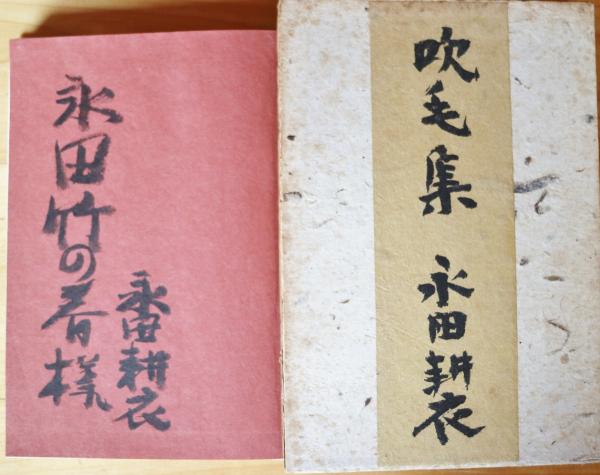 吹毛集 永田耕衣
永田竹の春様
永田耕衣